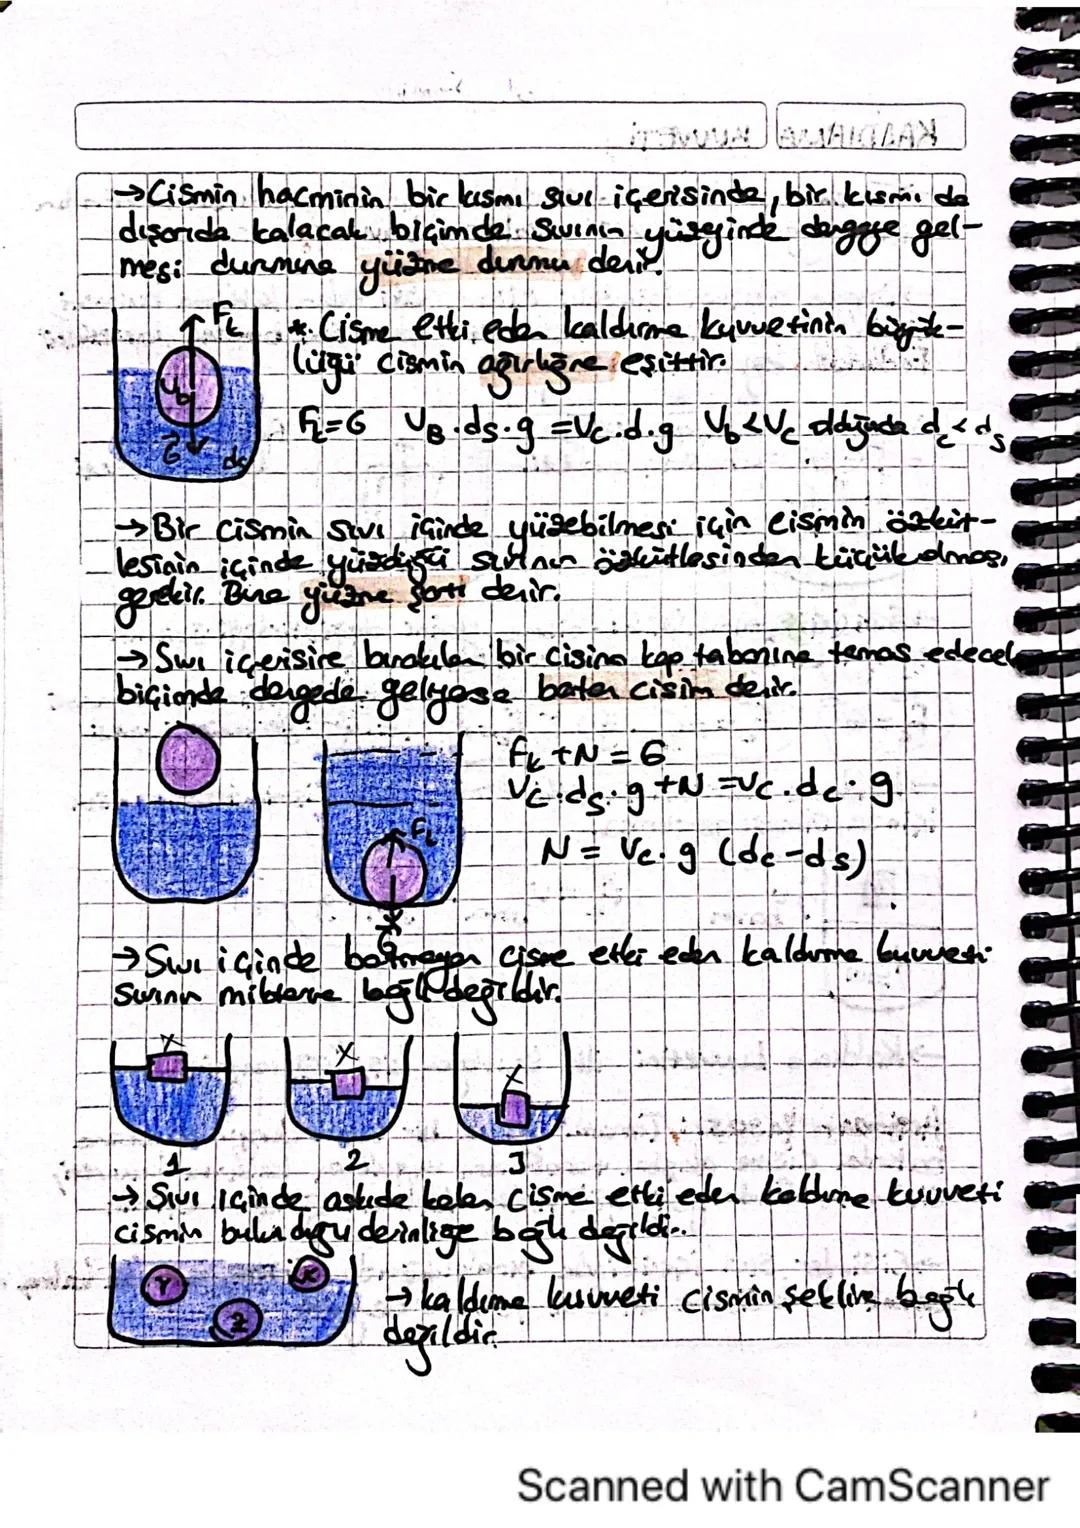 →Cismin hacminin bir kısmı sıvı içerisinde, bir kısmı da
dışarıda kalacak biçimde sıvının yüzeyinde dengeye gel-
mesi durumuna yüzme durumu denir.
Fk
* Cisme etki eden kaldırma kuvvetinin büyük-
lüğü cismin ağırlığına eşittir.
Vb
G
ds
Fk=G VB.ds.g=Vc.d.g Vb<Vc olduğunda dc<ds
→Bir cismin sıvı içinde yüzebilmesi için cismin özküt-
lesinin içinde yüzdüğü sıvının özkütlesinden küçük olması
gerekir. Buna yüzme şartı denir.
→Sıvı içerisine bırakılan bir cisim kap tabanına temas edecek
biçimde dengede geliyorsa batan cisim denir.
Fk+N=G
Vc.ds.g+N=Vc.dc.g
N=Vc.g (dc-ds)
Fk
G
→Sıvı içinde batmayan cisme etki eden kaldırma kuvveti
sıvının miktarına bağlı değildir.
X X X
1 2 3
→Sıvı içinde askıda kalan cisme etki eden kaldırma kuvveti
cismin bulunduğu derinliğe bağlı değildir.
Y X
Z
→kaldırma kuvveti cismin şekline bağlı
değildir.
Scanned with CamScanner